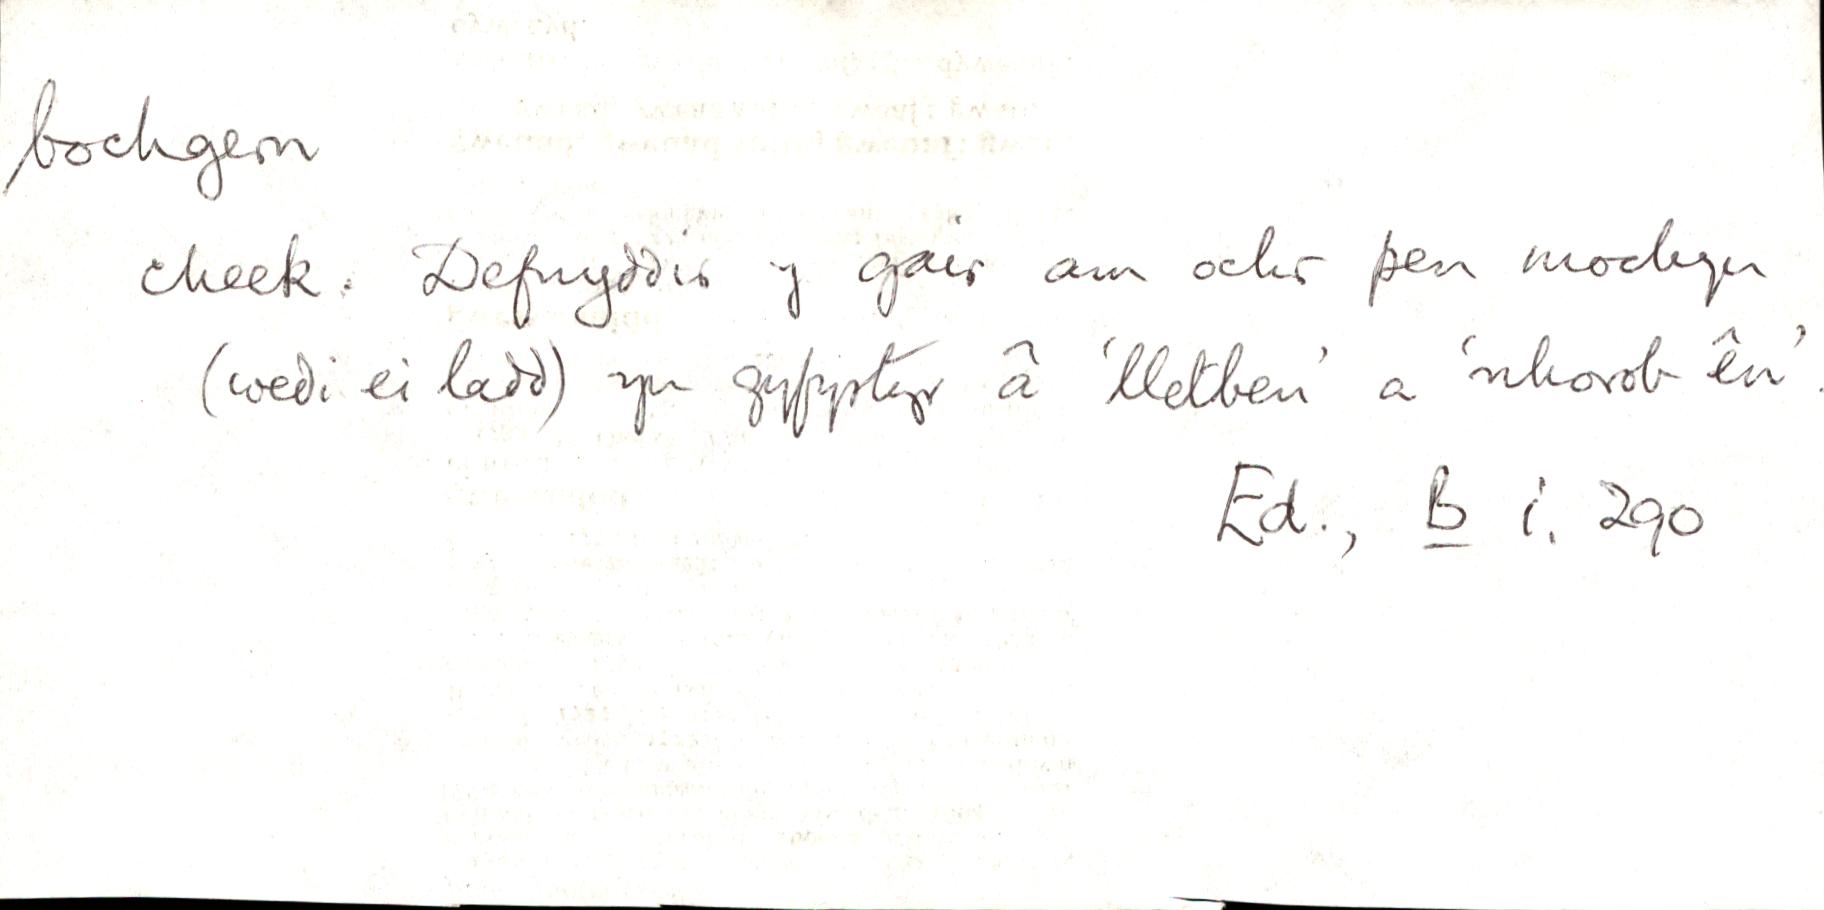 bochgern
cheek. Defnyddir y gair am ochr pen mochyn
(wedi ei ladd) yn gyfystyr â 'lletben' a 'rhorob ên'.
Ed., B i. 290